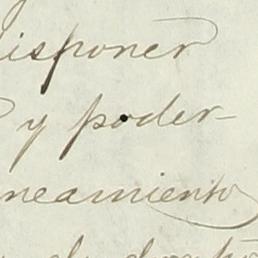 isponer
y poder-
neamiento